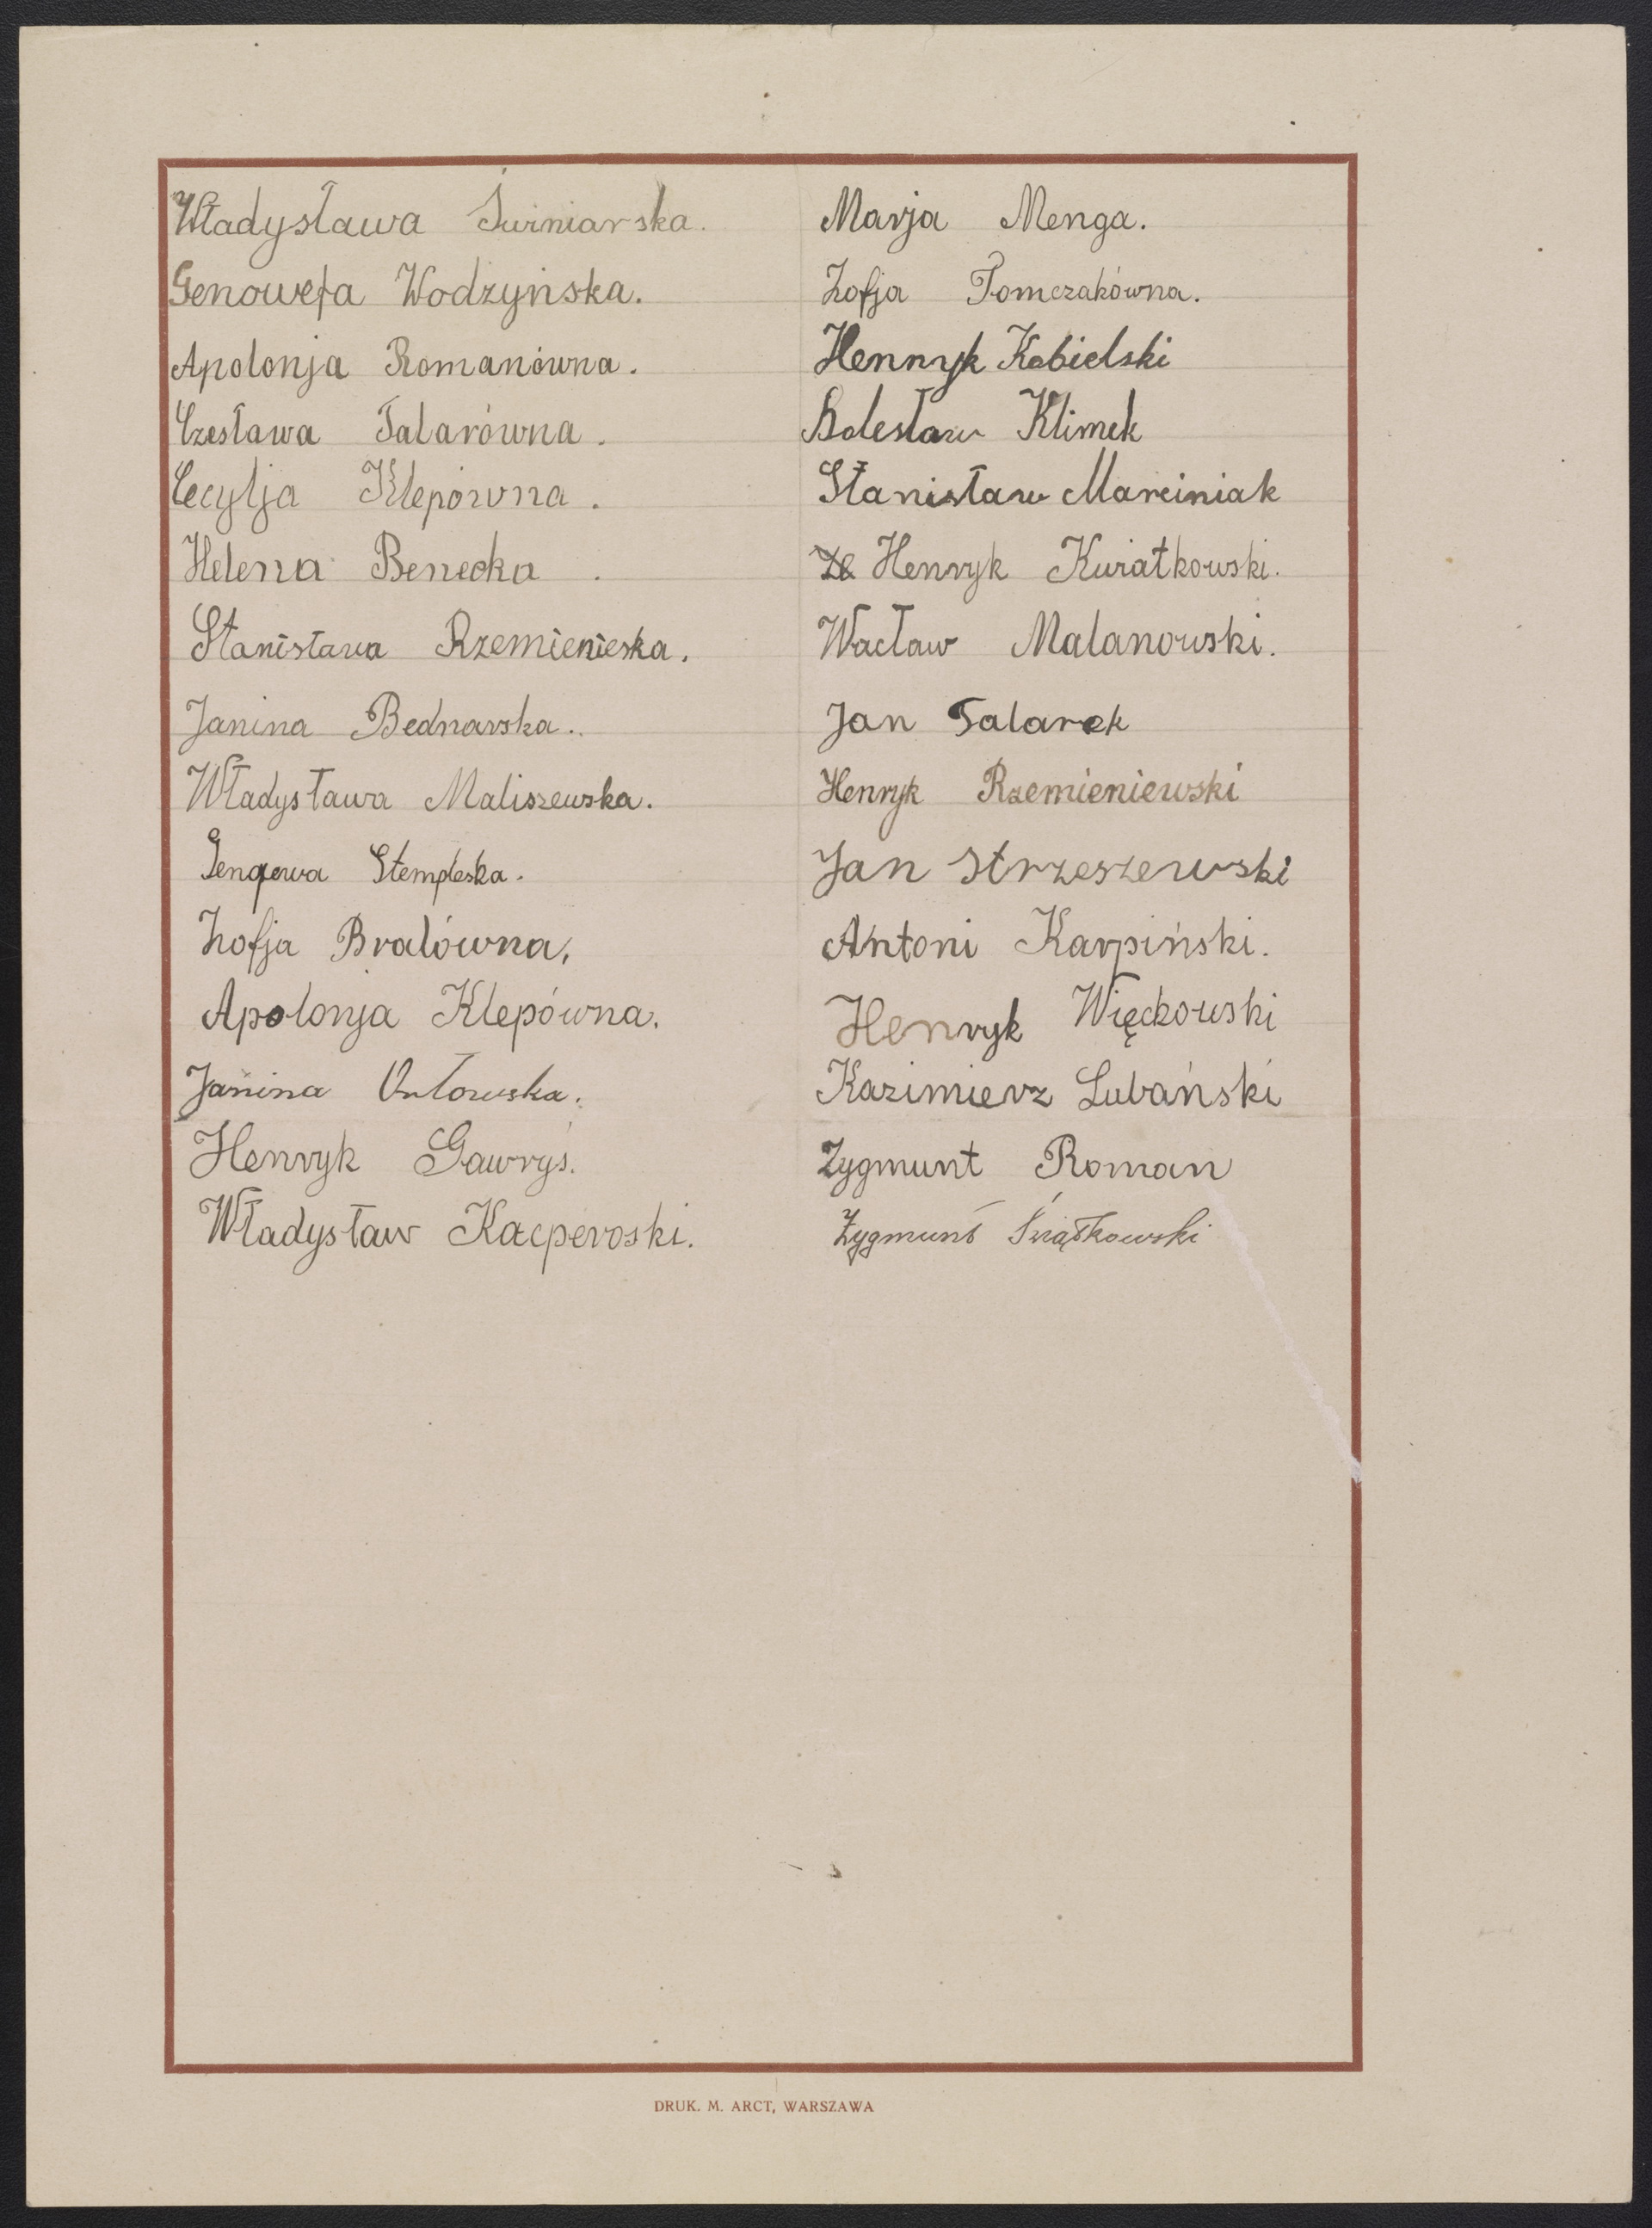 Władysława Świniarska.
Genowefa Wodzyńska.
Apolonja Romanówna.
Czesława Talarówna.
Cecylja Klepówna.
Helena Benecka.
Stanisława Rzemienieska.
Janina Bednarska.
Władysława Maliszewska.
Stempleska.
Zofja Bralówna,
Apolonja Klepówna.
Janina Orłowska.
Henryk Gawryś.
Władysław Kacperoski.
Marja Menga.
Zofja Tomczakówna.
Henryk Kobielski
Bolesław Klimek
Stanisław Marciniak
Henryk Kwiatkowski.
Wacław Malanowski.
Jan Talarek
Henryk Rzemieniewski
Jan Strzeszewski
Antoni Karpiński.
Henryk Więckowski
Kazimierz Lubański
Zygmunt Roman
Zygmunt Świątkowski
DRUK. M. ARCT, WARSZAWA